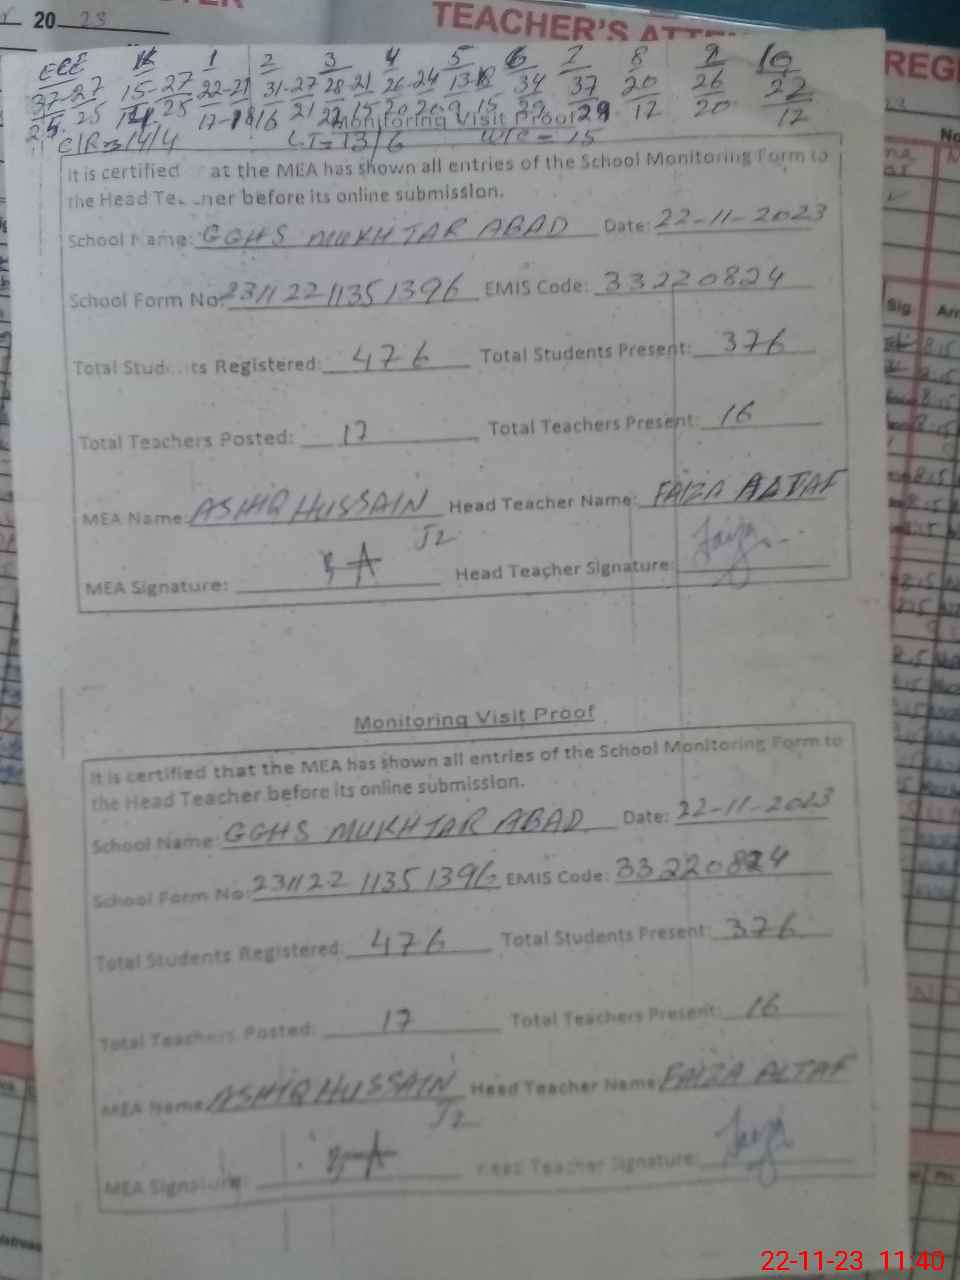 20 23
TEACHER'S ATTE
REGI
ECE K 1 2 3 4 5 6 7 8 9 10
37-27 15-27 22-21 31-27 28-21 26-24 34 37 20 26 22
25 25 25 16 21 20 15 29 12 20 12
Monitoring Visit Proof
C/R= 14/4 LT=13/6 W/C = 15
It is certified at the MEA has shown all entries of the School Monitoring Form to
the Head Te ner before its online submission.
School Name: GGHS MUKHTAR ABAD Date: 22-11-2023
School Form No: 23112211351396 EMIS Code: 33220824
Total Stud ts Registered: 476 Total Students Present: 376
Total Teachers Posted: 17 Total Teachers Present: 16
MEA Name: ASHIQ HUSSAIN Head Teacher Name: FAIZA ALTAF
J2
MEA Signature: Head Teacher Signature: Faiza
Monitoring Visit Proof
It is certified that the MEA has shown all entries of the School Monitoring Form to
the Head Teacher before its online submission.
School Name: GGHS MUKHTAR ABAD Date: 22-11-2023
School Form No: 231122 1135 1396 EMIS Code: 33220824
Total Students Registered: 476 Total Students Present: 376
Total Teachers Posted: 17 Total Teachers Present: 16
MEA Name: ASHIQ HUSSAIN Head Teacher Name: FAIZA ALTAF
J2
MEA Signature: Head Teacher Signature: Faiza
Sig. Arr
8.15
22-11-23 11:40